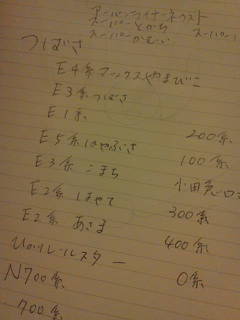 スーパー
スーパーとかち
スーパー
つばさ
E4系マックスやまびこ
E3系つばさ
E1系
E5系はやぶさ
E3系 こまち
E2系 はやて
E2系 あさま
ひかりレールスター
N700系
700系
200系
100系
小田急ロ
300系
400系
0系